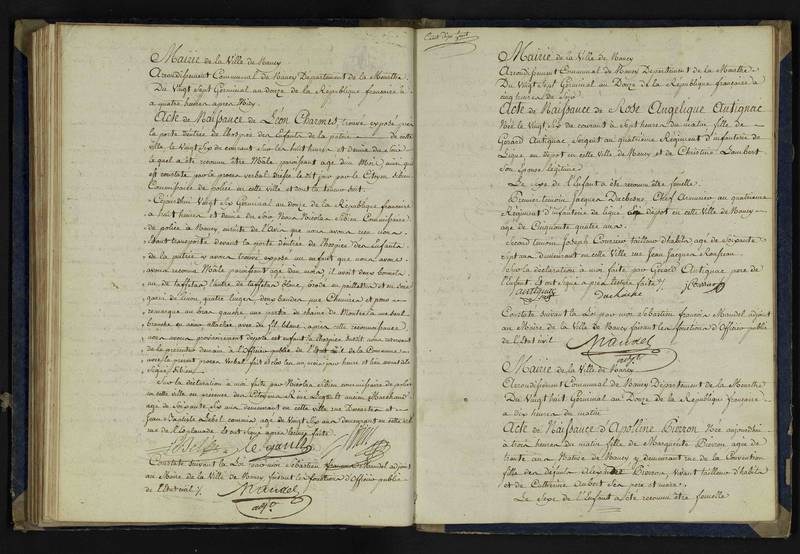 Mairie de la Ville de Nancy
Arrondissement Communal de Nancy Département de la Meurthe.
Du Vingt Sept Germinal an douze de la République française
a quatre heures après Midy.
Acte de Naissance de Léon Charmes, trouvé exposé
la porte d'entrée de l'hospice des Enfants de la patrie de cette
ville, le Vingt Six du courant sur les huit heures et demie du soir
lequel a été reconnu être Mâle paroissant agé d'un Mois, ainsi qu'il
est constaté par le procès verbal dressé le dit jour par le Citoyen
Commissaire de police en cette ville et dont la teneur suit.
Cejourd'hui Vingt Six Germinal an douze de la République française
a huit heures et demie du soir Nous Nicolas Commissaire
de police à Nancy, ensuite de l'avis que nous avons reçu nous
étant transporté devant la porte d'entrée de l'hospice des Enfants
de la patrie y avons trouvé exposé un enfant que nous avons
reconnu Mâle paroissant agé d'un mois, il avoit deux bonnets
un de taffetas l'autre de taffetas blanc, brodé en paillettes et en soie
garni de linon, quatre langes, deux bandes, une Chemise et pour
remarque au bras gauche, une partie de chaine de Montre
attachée avec du fil blanc, après cette reconnoissance,
nous avons provisoirement déposé cet enfant à l'hospice
le présent procès Verbal fait et clos les an, mois, jour, heure et lieu avant dits
Signé
Sur la déclaration à moi faite par Nicolas commissaire de police
en cette ville en présence des Citoyens ancien Marchand
agé de Soixante Six ans demeurant en cette ville rue et
Jean Baptiste Lebel commis, agé de Vingt Six ans demeurant en cette ville
rue de l'Esplanade et ont signé après lecture faite.
Constaté suivant la Loi par moi Sébastien françois Mandel adjoint
au Maire de la Ville de Nancy faisant les fonctions d'Officier public
de l'Etat civil.
Mandel
adj.t
Cent dix huit
Mairie de la Ville de Nancy
Arrondissement Communal de Nancy Département de la Meurthe.
Du Vingt Sept Germinal an Douze de la République française a
cinq heures du Soir
Acte de Naissance de Rose Angelique Autignac
Née le Vingt Six du courant à Sept heures du matin fille de
Gérard Autignac, Sergent au quatrième Régiment d'infanterie de
Ligne, en dépot en cette Ville de Nancy et de Christine Lambert
son épouse légitime.
Le Sexe de l'Enfant a été reconnu être femelle.
Premier témoin Jacques Duchesne, Chef Armurier au quatrième
Régiment d'infanterie de ligne en dépot en cette Ville de Nancy
agé de Cinquante quatre ans.
Second témoin Joseph tailleur d'habits agé de Soixante
sept ans demeurant en cette Ville rue Jean Jacques Rousseau
Sur la déclaration à moi faite par Gérard Autignac père de
l'Enfant. Et ont signé après lecture faite.
autignac
Constaté suivant la Loi par moi Sébastien françois Mandel adjoint
au Maire de la Ville de Nancy faisant les fonctions d'Officier public
de l'Etat civil
Mandel
adj.t
Mairie de la Ville de Nancy.
Arrondissement Communal de Nancy Département de la Meurthe
Du Vingt huit Germinal an Douze de la République françoise
a dix heures du matin
Acte de Naissance d'Apoline Pierron Née aujourd'hui
à trois heures du matin fille de Marguerite Pierron agée de
trente ans Native de Nancy y demeurant rue de la Convention
fille des défunts Pierron, vivant tailleur d'habits
et de Catherine Aubert ses père et mère.
Le Sexe de l'Enfant a été reconnu être femelle